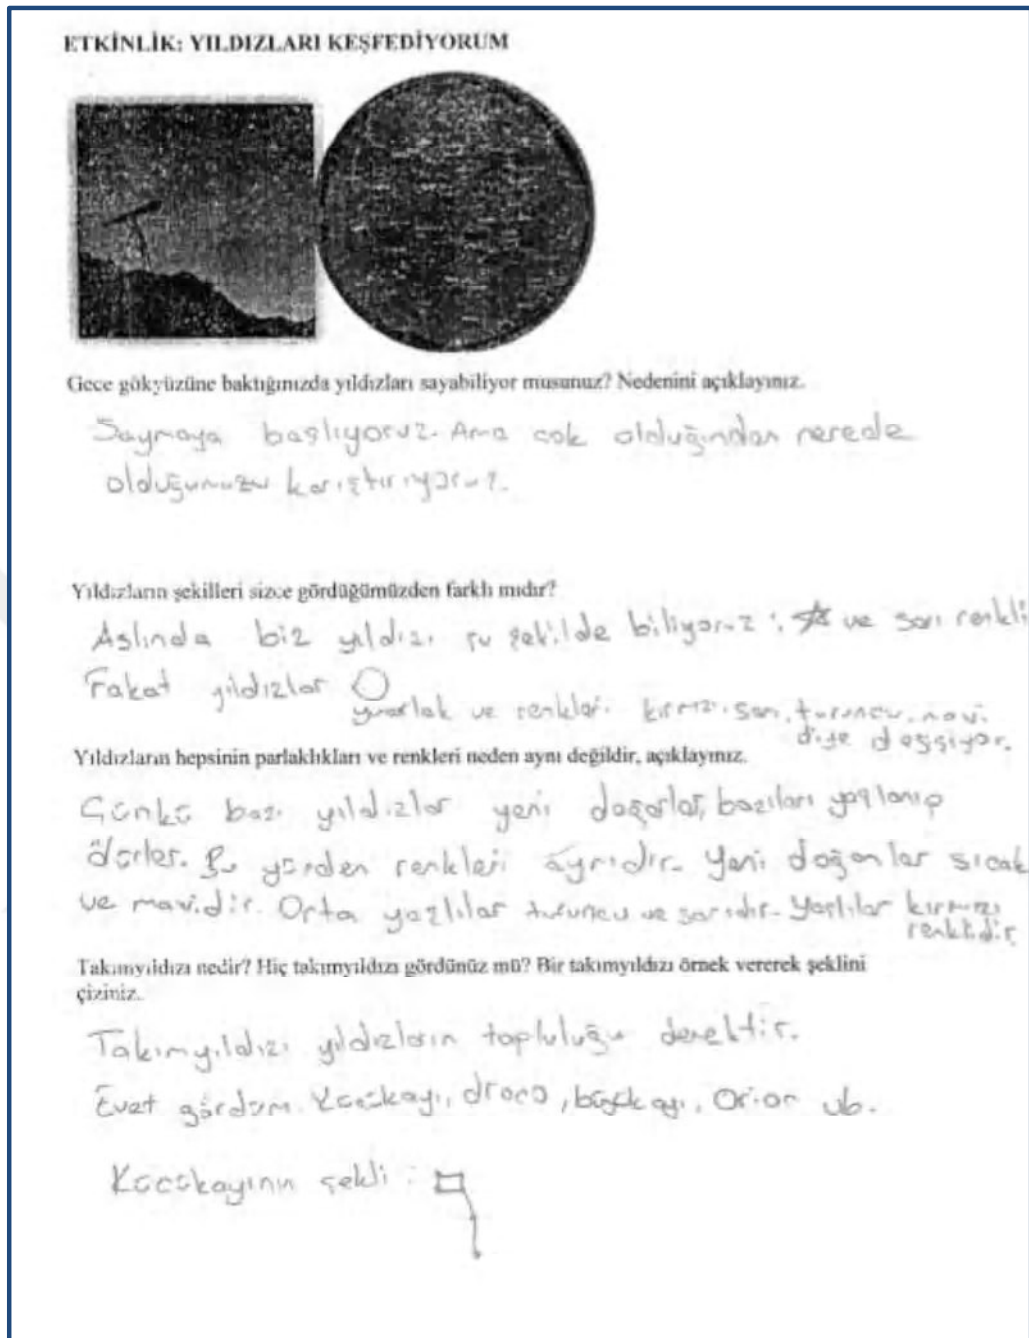 ETKİNLİK: YILDIZLARI KEŞFEDİYORUM
Gece gökyüzüne baktığınızda yıldızları sayabiliyor musunuz? Nedenini açıklayınız.
Saymaya başlıyoruz. Ama çok olduğundan nerede
olduğumuzu karıştırıyoruz.
Yıldızların şekilleri sizce gördüğümüzden farklı mıdır?
Aslında biz yıldızı şu şekilde biliyoruz : ☆ ve sarı renkli
Fakat yıldızlar ◯
yuvarlak ve renkleri kırmızı, sarı, turuncu, mavi
diye değişiyor.
Yıldızların hepsinin parlaklıkları ve renkleri neden aynı değildir, açıklayınız.
Çünkü bazı yıldızlar yeni doğarlar, bazıları yaşlanıp
ölürler. Bu yüzden renkleri ayrıdır. Yeni doğanlar sıcak
ve mavidir. Orta yaşlılar turuncu ve sarıdır. Yaşlılar kırmızı
renktedir
Takımyıldızı nedir? Hiç takımyıldızı gördünüz mü? Bir takımyıldızı örnek vererek şeklini
çiziniz.
Takımyıldızı yıldızların topluluğu demektir.
Evet gördüm. Küçükayı, draco, büyük ayı, Orion vb.
Küçükayının şekli :